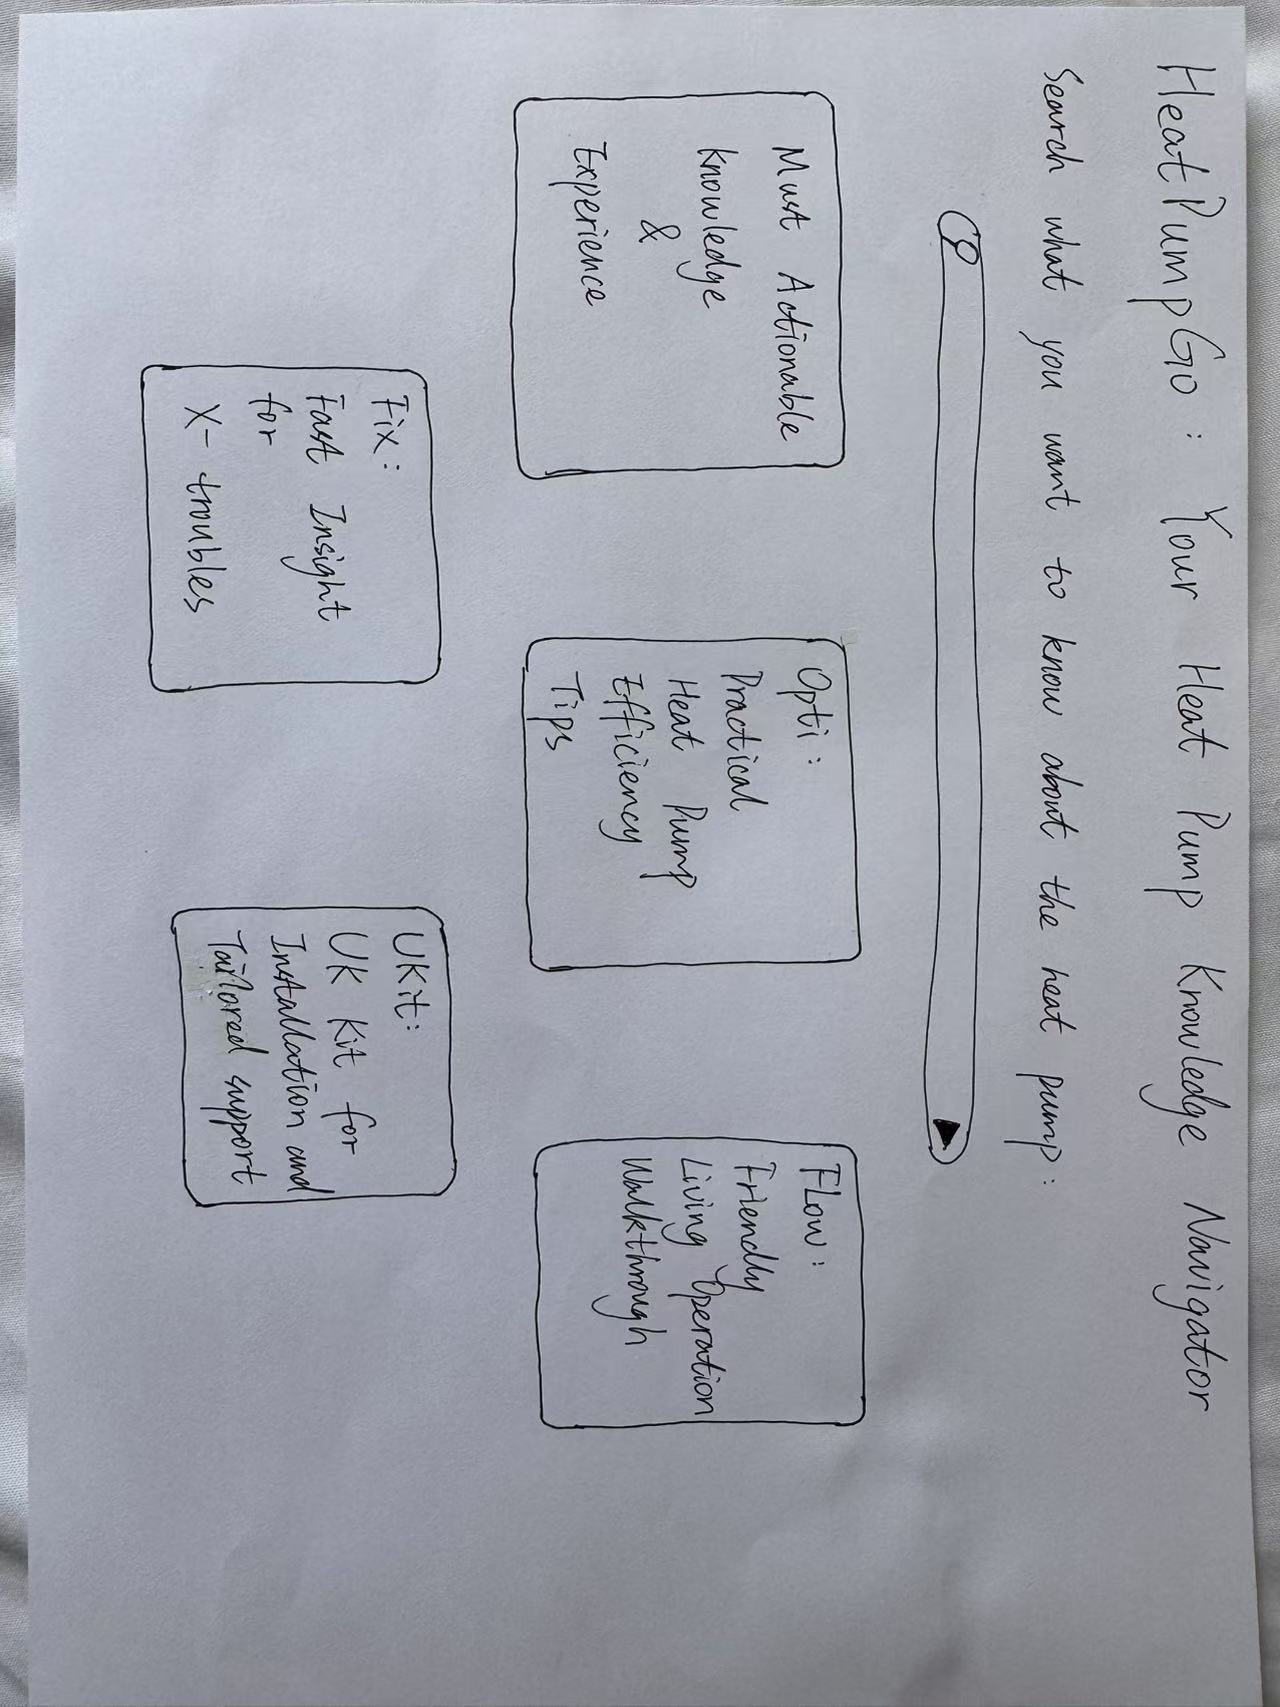 HeatPumpGo: Your Heat Pump Knowledge Navigator
Search what you want to know about the heat pump:
Must Actionable
Knowledge
&
Experience
Opti:
Practical
Heat Pump
Efficiency
Tips
FLow:
Friendly
Living Operation
Walkthrough
Fix:
Fast Insight
for
X-troubles
UKit:
UK Kit for
Installation and
Tailored support